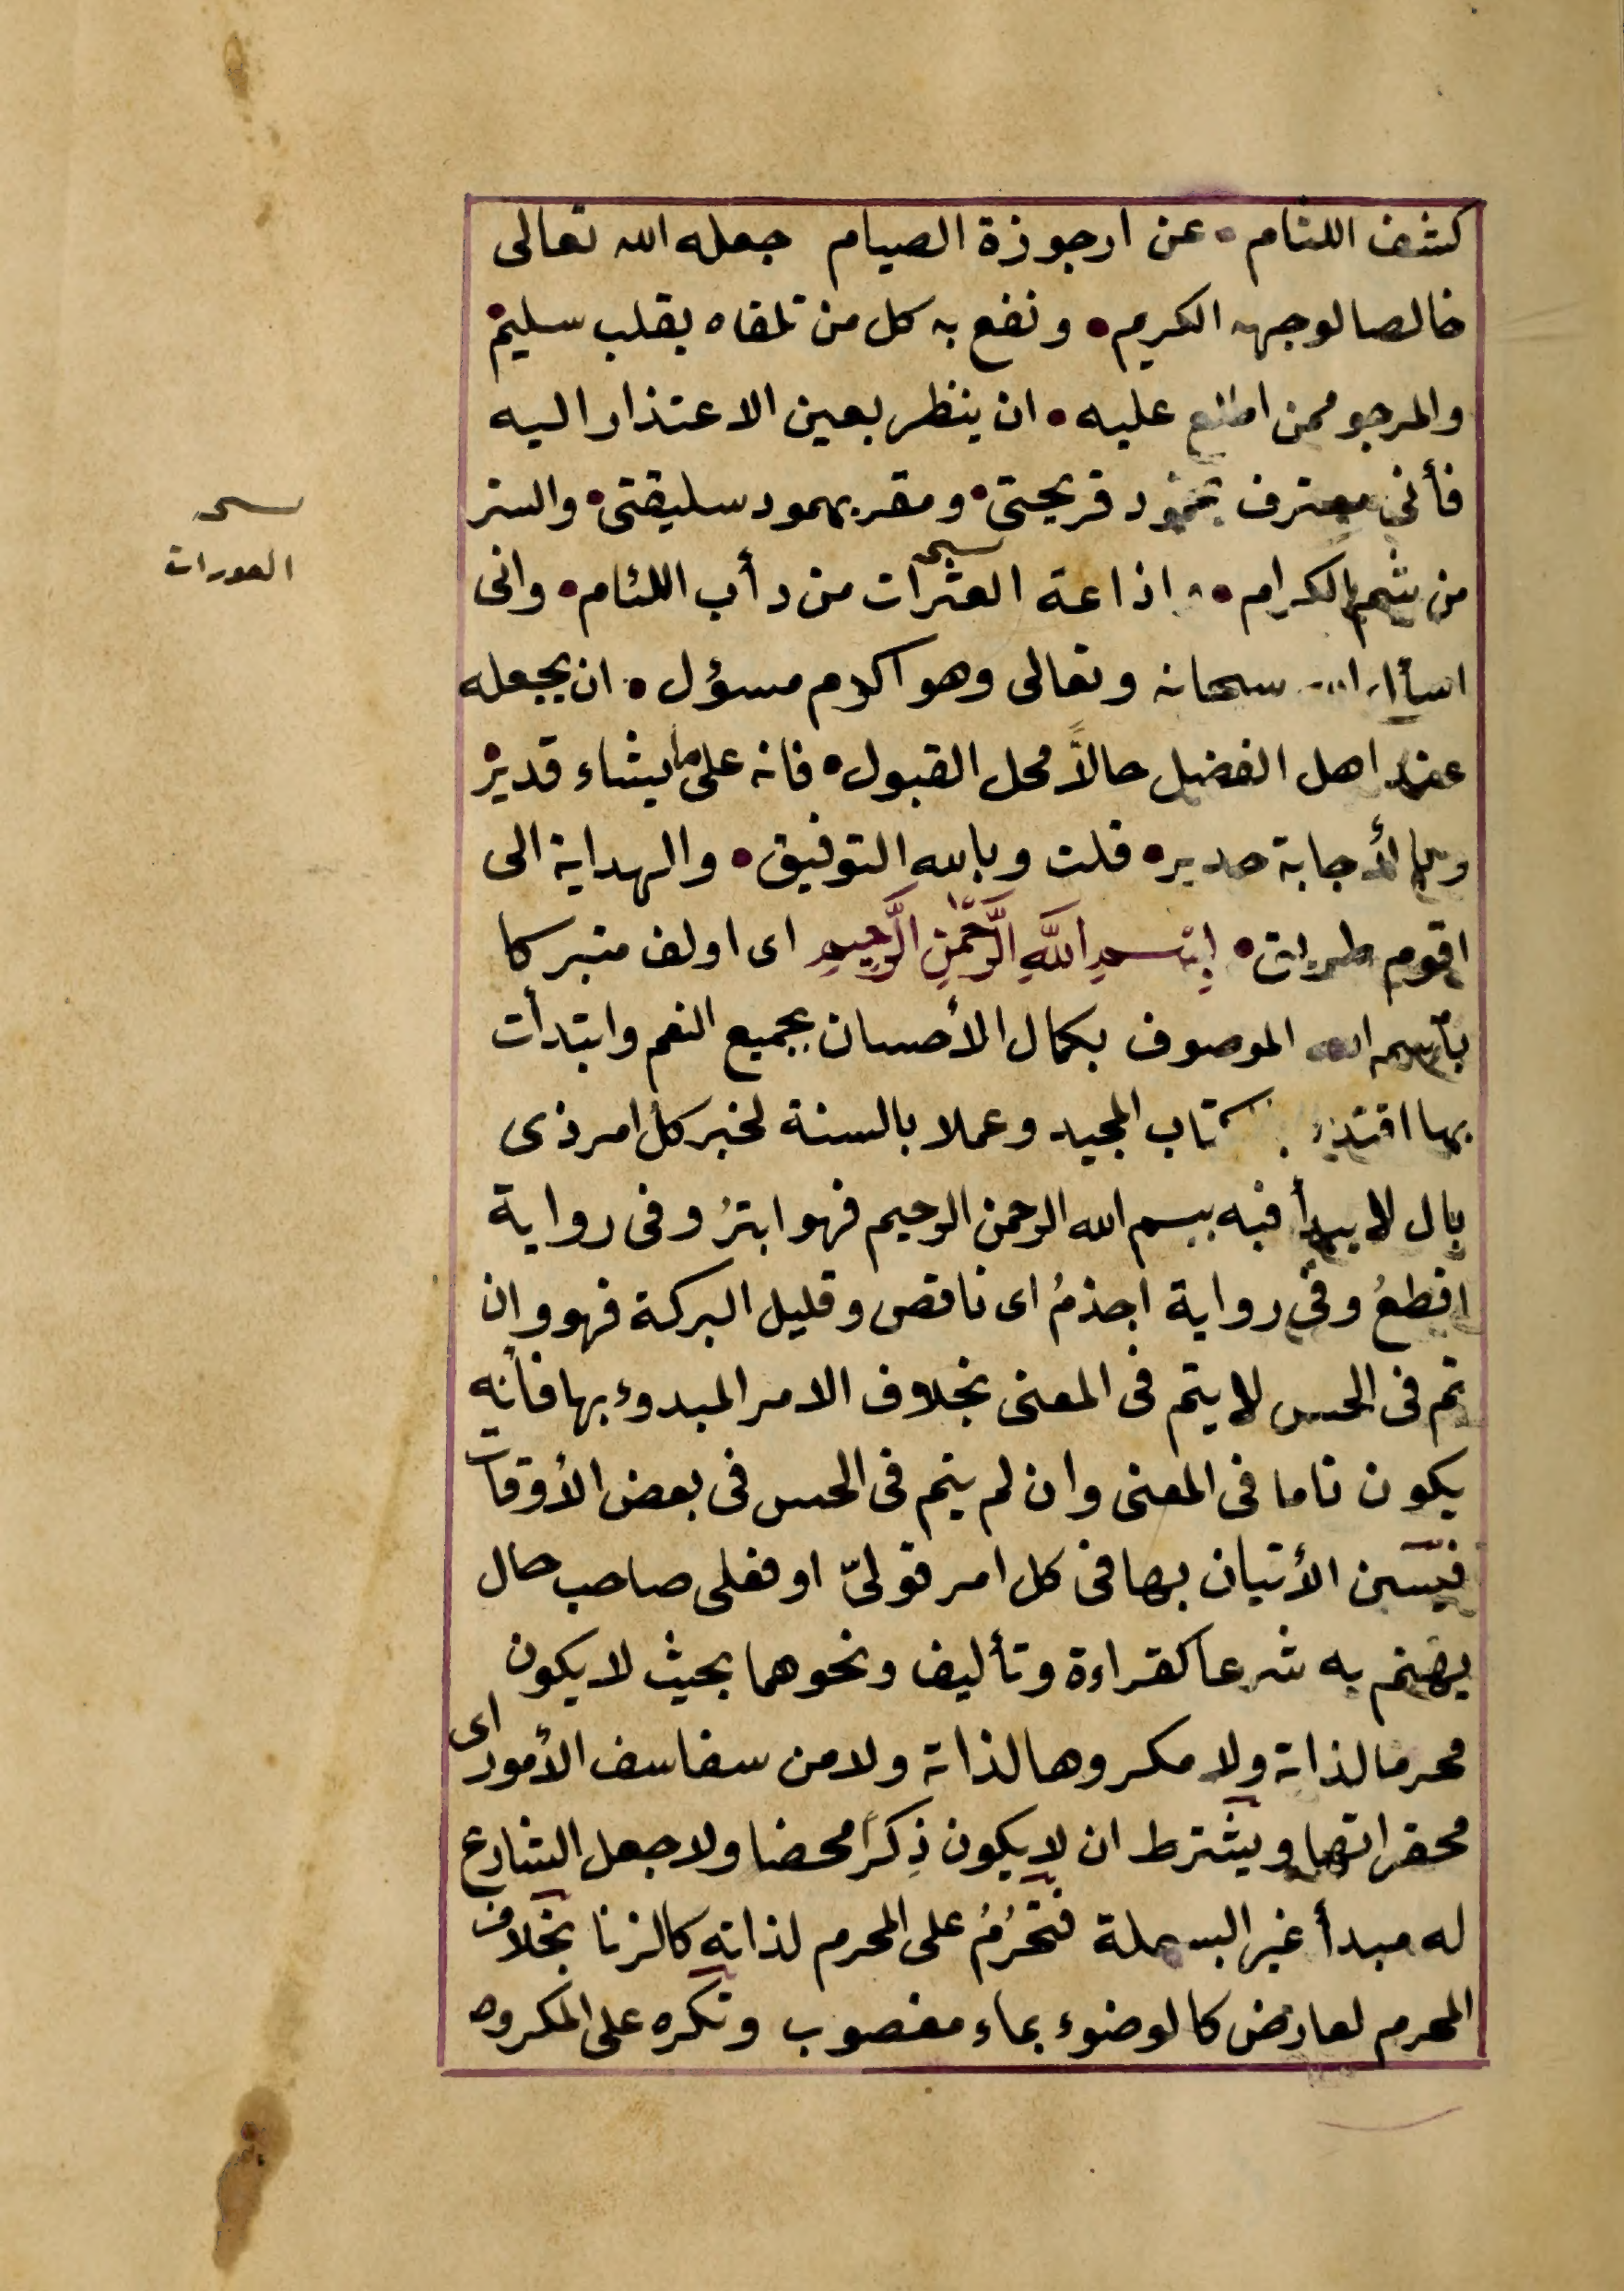 كشف اللثام • عن ارجوزة الصيام جعله الله تعالى
خالصا لوجهه الكريم • ونفع به كل من تلقاه بقلب سليم •
والمرجو ممن اطلع عليه • ان ينظر بعين الاعتذار اليه
فأنى معترف بخمود قريحتى • ومقر بهمود سليقتى • والستر
من شيم الكرام • واذاعة العثرات من دأب اللئام • وانى
العورات
اسأل الله سبحانه وتعالى وهو اكرم مسؤل • ان يجعله
عند اهل الفضل حالاً محل القبول • فانه على ما يشاء قدير •
وبالأجابة جدير • قلت وبالله التوفيق • والهداية الى
اقوم طريق • بِسْمِ اللَّهِ الرَّحْمٰنِ الرَّحِيمِ اى اولف متبركا
بأسم الله الموصوف بكمال الأحسان بجميع النعم وابتدأت
بها اقتداء بالكتاب المجيد وعملا بالسنة لخبر كل امر ذى
بال لا يبدأ فيه ببسم الله الرحمن الرحيم فهو ابترُ وفى رواية
اقطعُ وفى رواية اجذمُ اى ناقص وقليل البركة فهو وان
تم فى الحس لا يتم فى المعنى بخلاف الامر المبدوء بها فأنه
يكون تاما فى المعنى وان لم يتم فى الحس فى بعض الأوقات
فيسن الأتيان بها فى كل امر قولىّ او فعلى صاحب حال
يهتم به شرعا كقراءة وتأليف ونحوهما بحيث لا يكون
محرما لذاته ولا مكروها لذاته ولا من سفاسف الأمور اى
محقراتها ويشترط ان لا يكون ذِكرًا محضا ولا جعل الشارع
له مبدأ غير البسملة فتحرُمُ على المحرم لذاته كالزنا بخلاف
المحرم لعارض كالوضوء بماء مغصوب وتكره على المكروه